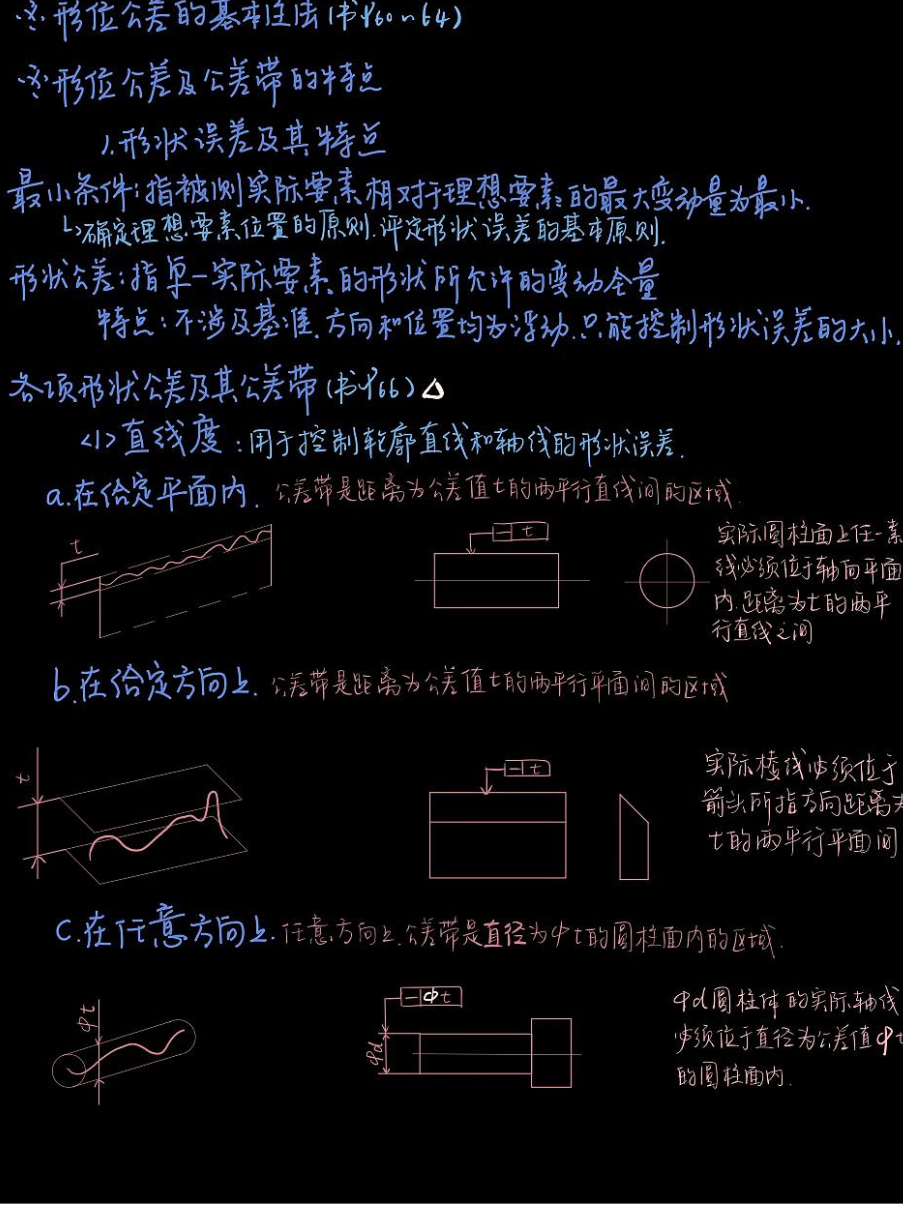 ※形位公差的基本注法(书P60~64)
※形位公差及公差带的特点
1.形状误差及其特点
最小条件:指被测实际要素相对于理想要素的最大变动量为最小.
↳确定理想要素位置的原则.评定形状误差的基本原则.
形状公差:指单一实际要素的形状所允许的变动全量
特点:不涉及基准.方向和位置均为浮动.只能控制形状误差的大小.
各项形状公差及其公差带(书P66)△
<1>直线度:用于控制轮廓直线和轴线的形状误差.
a.在给定平面内.公差带是距离为公差值t的两平行直线间的区域.
t
— t
实际圆柱面上任一素
线必须位于轴向平面
内.距离为t的两平
行直线之间
b.在给定方向上.公差带是距离为公差值t的两平行平面间的区域
t
— t
实际棱线必须位于
箭头所指方向距离为
t的两平行平面间
c.在任意方向上.任意方向上.公差带是直径为φt的圆柱面内的区域.
φt
— φt
φd
φd圆柱体的实际轴线
必须位于直径为公差值φt
的圆柱面内.